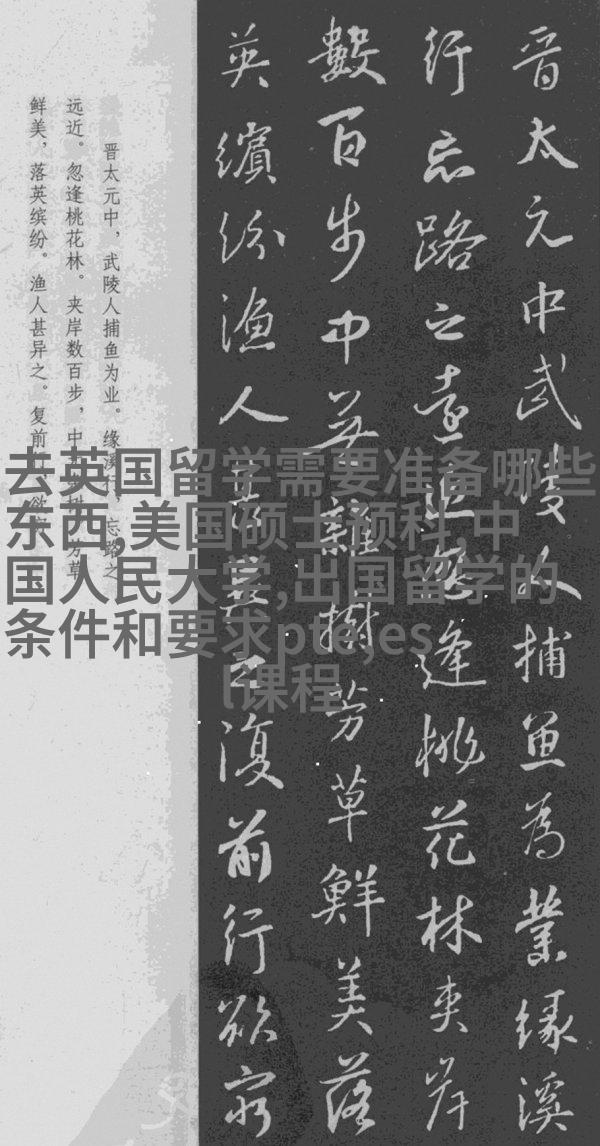 晋太元中武陵人捕魚為業緣溪
行忘路之遠近忽逢桃花林夾岸
數百步中無雜樹芳草鮮美落
英繽紛漁人甚異之復前行欲窮
晋太元中，武陵人捕鱼为业。缘溪行，忘路之
远近。忽逢桃花林。夹岸数百步，中无杂树，芳草
鲜美，落英缤纷。渔人甚异之。复前行，欲
去英国留学需要准备哪些
东西,美国硕士预科,中
国人民大学,出国留学的
条件和要求pte,es
l课程